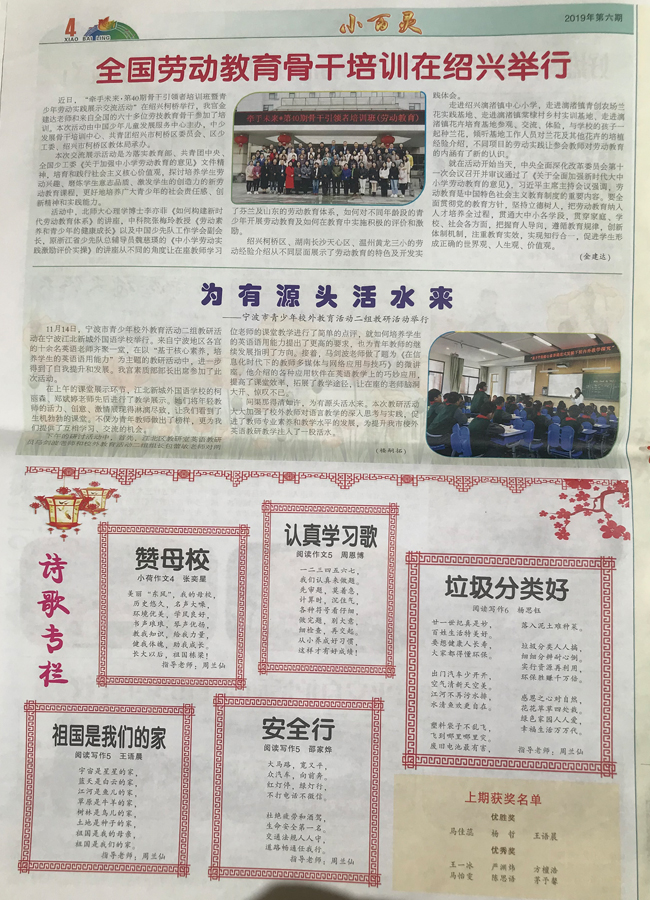 4
XIAO BAI LING
小百灵
2019年第六期
全国劳动教育骨干培训在绍兴举行
近日，“牵手未来·第40期骨干引领者培训班暨青
少年劳动实践展示交流活动”在绍兴柯桥举行，我宫金
建达老师和来自全国的六十多位劳技教育骨干参加了培
训。本次活动由中国少年儿童发展服务中心主办，中少
发展骨干培训中心、共青团绍兴市柯桥区委员会、区少
工委、绍兴市柯桥区教体局承办。
本次交流展示活动是为落实教育部、共青团中央、
全国少工委《关于加强中小学劳动教育的意见》文件精
神，培育和践行社会主义核心价值观，探讨培养学生劳
动兴趣、磨炼学生意志品质、激发学生的创造力的新劳
动教育课程，更好地培养广大青少年的社会责任感、创
新精神和实践能力。
活动中，北师大心理学博士李亦菲《如何构建新时
代劳动教育体系》的讲座，中科院张梅玲教授《劳动素
养和青少年的健康成长》以及中国少先队工作学会副会
长，原浙江省少先队总辅导员魏慈瑛的《中小学劳动实
践激励评价实操》的讲座从不同的角度让在座教师学习
牵手未来·第40期骨干引领者培训班(劳动教育)
了芬兰及山东的劳动教育体系、如何对不同年龄段的青
少年开展劳动教育及如何在教育中实施积极的评价和激
励。
绍兴柯桥区、湖南长沙天心区、温州黄龙三小的劳
动经验介绍从不同层面展示了劳动教育的特色及开发实
践体会。
走进绍兴漓渚镇中心小学，走进漓渚镇青创农场兰
花实践基地、走进漓渚镇棠棣村乡村实训基地、走进漓
渚镇花卉培育基地参观、交流、体验，与学校的孩子一
起种兰花，倾听基地工作人员对兰花及其他花卉的培植
经验介绍，不同项目的劳动实践让参会教师对劳动教育
的内涵有了新的认识。
就在活动开始当天，中央全面深化改革委员会第十
一次会议召开并审议通过了《关于全面加强新时代大中
小学劳动教育的意见》。习近平主席主持会议强调，劳
动教育是中国特色社会主义教育制度的重要内容。要全
面贯彻党的教育方针，坚持立德树人，把劳动教育纳入
人才培养全过程，贯通大中小各学段，贯穿家庭、学
校、社会各方面，把握育人导向，遵循教育规律，创新
体制机制，注重教育实效，实现知行合一，促进学生形
成正确的世界观、人生观、价值观。
(金建达)
为有源头活水来
——宁波市青少年校外教育活动二组教研活动举行
11月14日，宁波市青少年校外教育活动二组教研活
动在宁波江北新城外国语学校举行，来自宁波地区各宫
的十余名英语老师齐聚一堂，在以“基于核心素养，培
养学生的英语语用能力”为主题的教研活动中，进一步
得到了自我提升和发展，我宫素质部部长出席参加了此
次活动。
在上午的课堂展示环节，江北新城外国语学校的柯
丽森、郑斌婷老师先后进行了教学展示，她们将年轻教
师的活力、创意、激情展现得淋漓尽致，让我们看到了
生机勃勃的课堂，不仅为青年教师做出了榜样，更为我
们提供了互相学习、交流的机会。
位老师的课堂教学进行了简单的点评，就如何培养学生
的英语语用能力提出了更高的要求，也为青年教师的继
续发展指明了方向。接着，马剑波老师做了题为《在信
息化时代下的教师多媒体与网络应用与技巧》的微讲
座，他介绍的各种应用软件在英语教学上的巧妙应用，
提高了课堂效率，拓展了教学途径，让在座的老师脑洞
大开、惊叹不已。
问渠那得清如许，为有源头活水来，本次教研活动
大大加强了校外教师对语言教学的深入思考与实践，促
进了教师专业素养和教学水平的发展，为提升我市校外
英语教研教学注入了一股活水。
诗歌专栏
赞母校
小荷作文4 张奕星
美丽“东风”，我的母校，
历史悠久，名声大噪，
环境优美，学风良好，
书声琅琅，琴声优扬，
教我知识，给我力量，
健我体魄，助我成长，
长大以后，祖国栋梁！
指导老师：周兰仙
认真学习歌
阅读作文5 周恩博
一二三四五六七，
我们认真来做题。
先审题，莫着急，
计算时，沉住气，
各种符号看仔细，
做完题，别大意，
细检查，再交起。
从小养成好习惯，
这样才有好成绩！
垃圾分类好
阅读写作5 杨思钰
廿一世纪真是妙，
百姓生活特美好。
要想健康人长寿，
大家都得懂环保。
出门汽车少开开，
空气清新天空美。
江河不再污水排，
水清鱼欢更自在。
塑料袋子不乱飞，
飞到哪里哪里哭。
废旧电池最有害，
落入泥土难种菜。
垃圾分类人人搞，
细细分辨耐心倒。
实行资源再利用，
环保胜赚千万倍。
感恩之心对自然，
花花草草四处栽。
绿色家园人人爱，
幸福生活万万代。
指导老师：周兰仙
祖国是我们的家
阅读写作5 王语晨
宇宙是星星的家，
蓝天是白云的家，
江河是鱼儿的家，
草原是牛羊的家，
树林是鸟儿的家，
土地是种子的家，
祖国是我的母亲，
祖国是我们的家。
指导老师：周兰仙
安全行
阅读写作5 邵家烨
大马路，宽又平，
众汽车，向前奔。
红灯停，绿灯行，
不打电话不微信。
杜绝疲劳和酒驾，
生命安全第一名。
交通法规人人守，
道路畅通任我行。
指导老师：周兰仙
上期获奖名单
优胜奖
马佳蕊 杨哲 王语晨
优秀奖
王一冰 严湘祎 方檀浩
马怡雯 陈思语 茅予馨